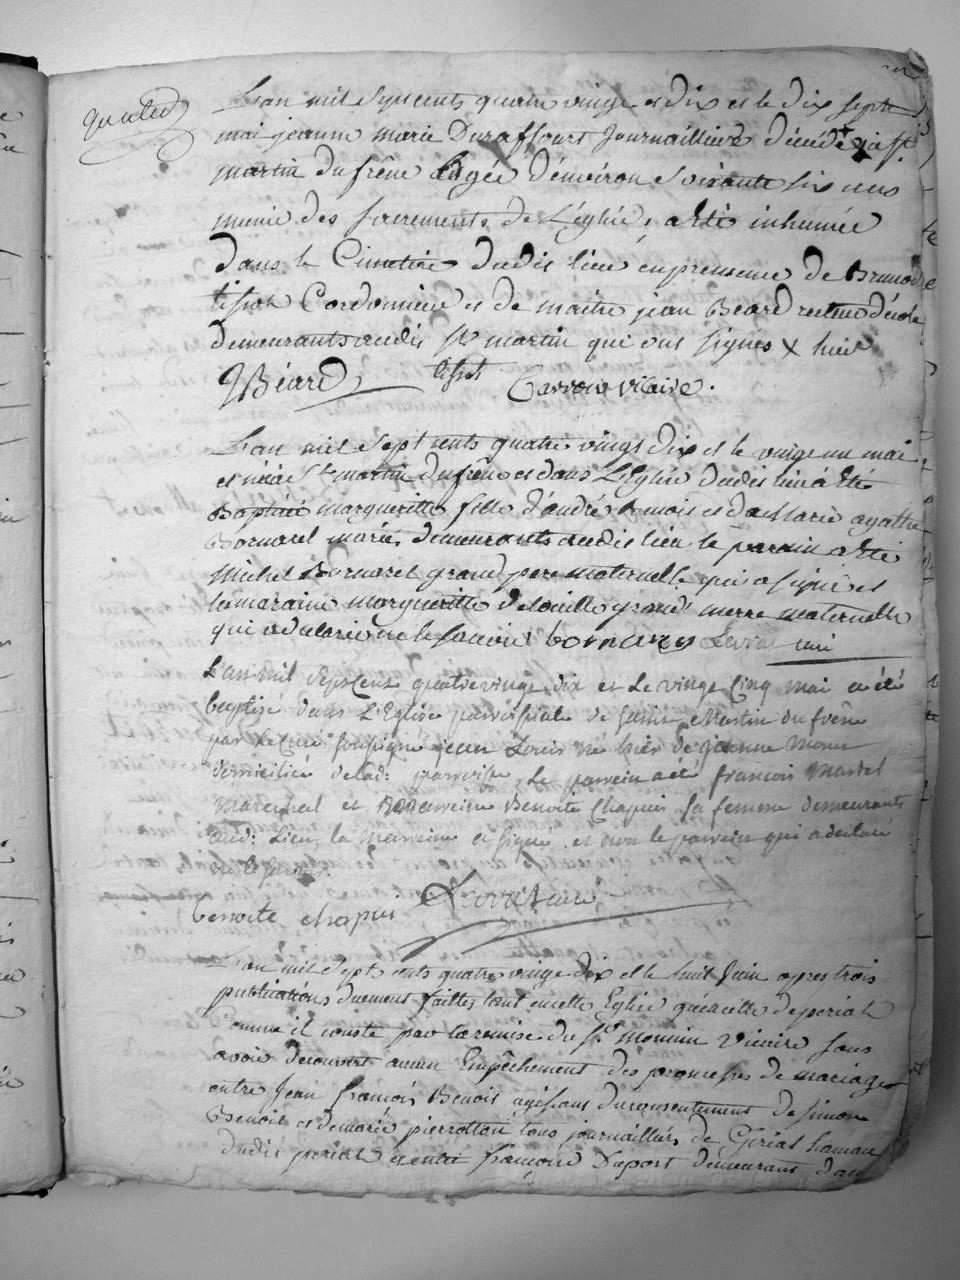 L'an mil sept cents quatre vingt et dix et le dix sept
mai jeanne marie Duraffourt Journailliere décédé a St
martin du frêne agée d'environ Soixante six ans
munie des Sacrements de L'églie, a été inhumée
dans le Cimetiere dudit lieu en presence de
Cordonnier et de maitre jean Béard recteur d'école
demeurants audit St martin qui ont signés x hier
JBéard tissot Carron vicaire.
L'an mil Sept cents quatre vingt dix et le vingt un mai
est née a St martin du frêne et dans L'Eglie dudit lieu a été
Baptiée margueritte fille d'andré benoit et de Marie agathe
Bornarel mariés demeurants audit lieu le parain a été
Michel Bornarel grand pere maternelle qui a signé et
la maraine margueritte grand merre maternelle
qui a declaré ne le savoir bornarez curé
L'an mil Sept Cent quatre vingt dix et Le vingt Cinq mai a été
baptisé dans L'Eglise paroissiale de Saint Martin du frêne
par le Curé soussigné jean Louis né hier de jeanne
domicilié de lad: paroisse, Le parrein a été francois
Marechal et La marreine Benoite Chapuis Sa femme demeurants
aud: Lieu, la marreine a signé, et non le parrein qui a declaré
ne le savoir.
benoite chapui curé
L'an mil Sept cents quatre vingt dix et le huit Juin apres trois
publications duement faittes tant en cette Eglie qu'en celle de peria
comme il conste par la remise du Sr Monnin Vicaire sans
avoir decouvert aucun Empêchement des promesses de mariage
entre Jean francois Benoit agissant du consentement de simon
Benoit et de marie pierrotton tous journailliers de
dudit et entre francoise Duport demeurant dans